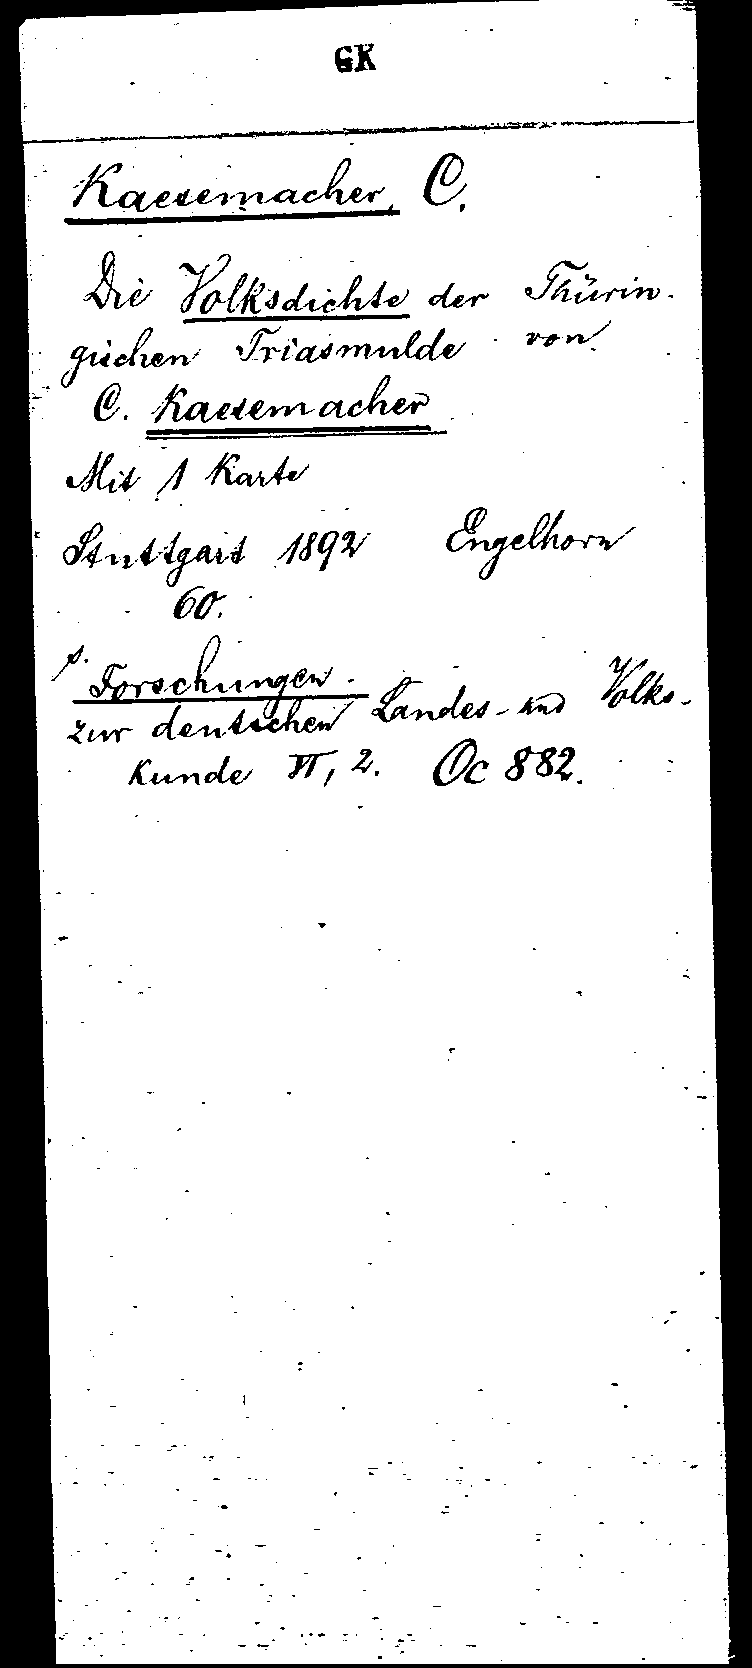 GK
Kaesemacher, C.
Die Volksdichte der Thürin-
gischen Triasmulde von
C. Kaesemacher
Mit 1 Karte
Stuttgart 1892 Engelhorn
60.
s.
Forschungen
zur deutschen Landes- und Volks-
kunde VI, 2. Oc 882.